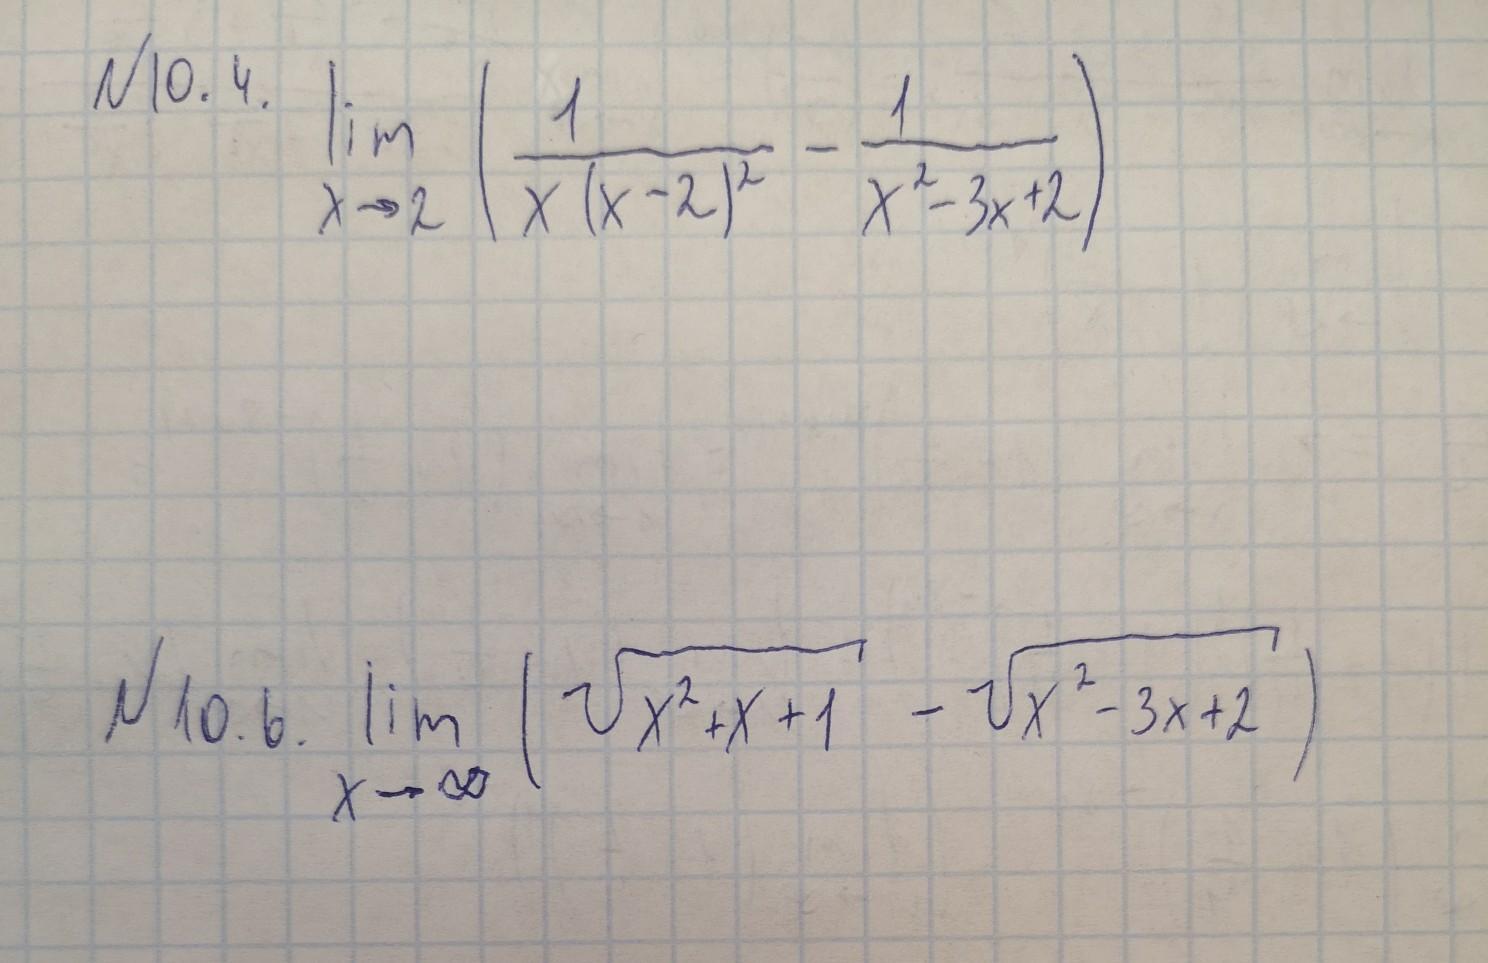 N10.4. lim x→2 (1/(x(x-2)²) - 1/(x²-3x+2))
N10.6. lim x→∞ (√(x²+x+1) - √(x²-3x+2))